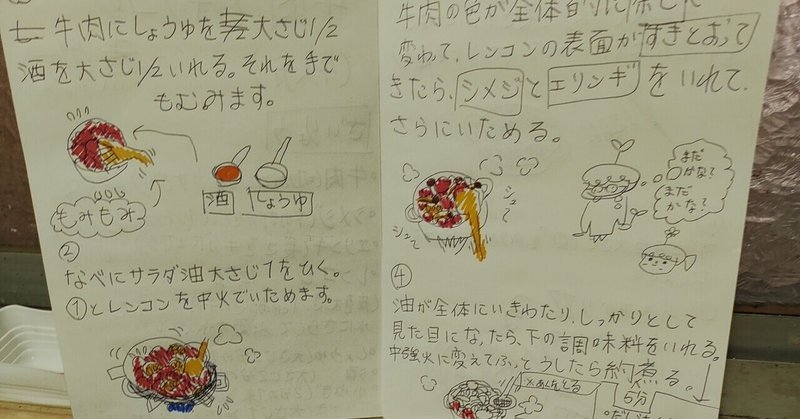 牛肉にしょうゆを大さじ1/2
酒を大さじ1/2いれる。それを手で
もむみます。
酒
しょうゆ
もみもみ
②
なべにサラダ油大さじ1をひく。
①とレンコンを中火でいためます。
牛肉の色が全体的に
変わて、レンコンの表面がすきとおって
きたら、シメジとエリンギをいれて、
さらにいためる。
まだ
かなて
まだ
かーな?
ジュ〜
ジュ〜
④
油が全体にいきわたり、しっかりとして
見た目になったら、下の調味料をいれる。
中強火に変えてふっとうしたら約煮る。
5分
×あくをとる